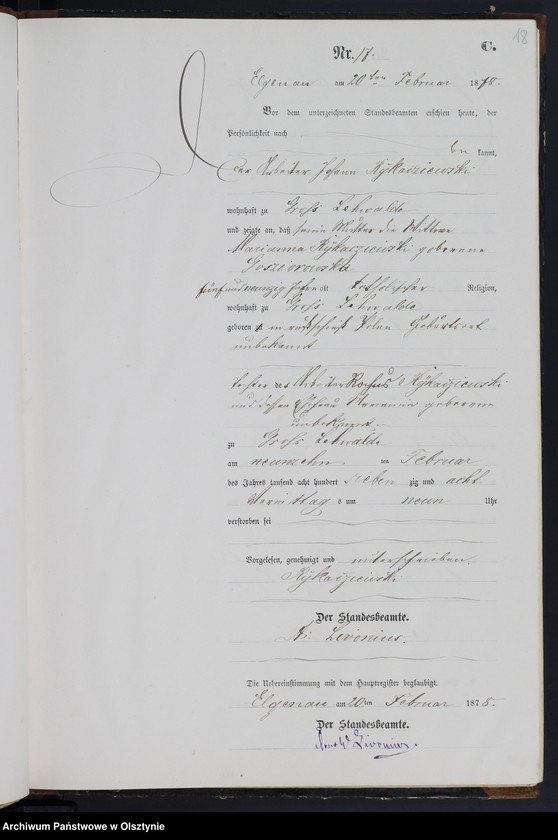 18
C.
Nr. 17.
Elgenau am 20ten Februar 1878.
Vor dem unterzeichneten Standesbeamten erschien heute, der
Persönlichkeit nach
be kannt,
der Arbeiter Johann Rykaczewski
wohnhaft zu Groß Lehwalde
und zeigte an, daß seine Mutter die Wittwe
Marianna Rykaczewski geborene
fünfundzwanzig Jahre alt katholischer Religion,
wohnhaft zu Groß Lehwalde
geboren zu in Geburtsort
unbekannt
Tochter des Arbeiter Rochus Rykaczewski
und dessen Ehefrau Marianna geborene
unbekannt
zu Groß Lehwalde
am neunzehn ten Februar
des Jahres tausend acht hundert sieben zig und acht
Vormittag s um neun Uhr
verstorben sei
Vorgelesen, genehmigt und unterschrieben.
Rykaczewski
Der Standesbeamte.
Livonius.
Die Uebereinstimmung mit dem Hauptregister beglaubigt.
Elgenau am 20ten Februar 1878.
Der Standesbeamte.
Livonius.
Archiwum Państwowe w Olsztynie